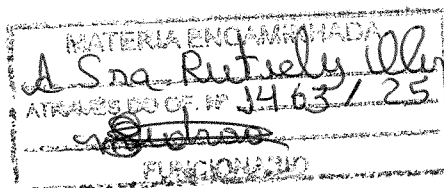 MATERIA ENCAMINHADA
A Sra Rutiely
ATRAVES DO OF. Nº 1463/25
FUNCIONARIO